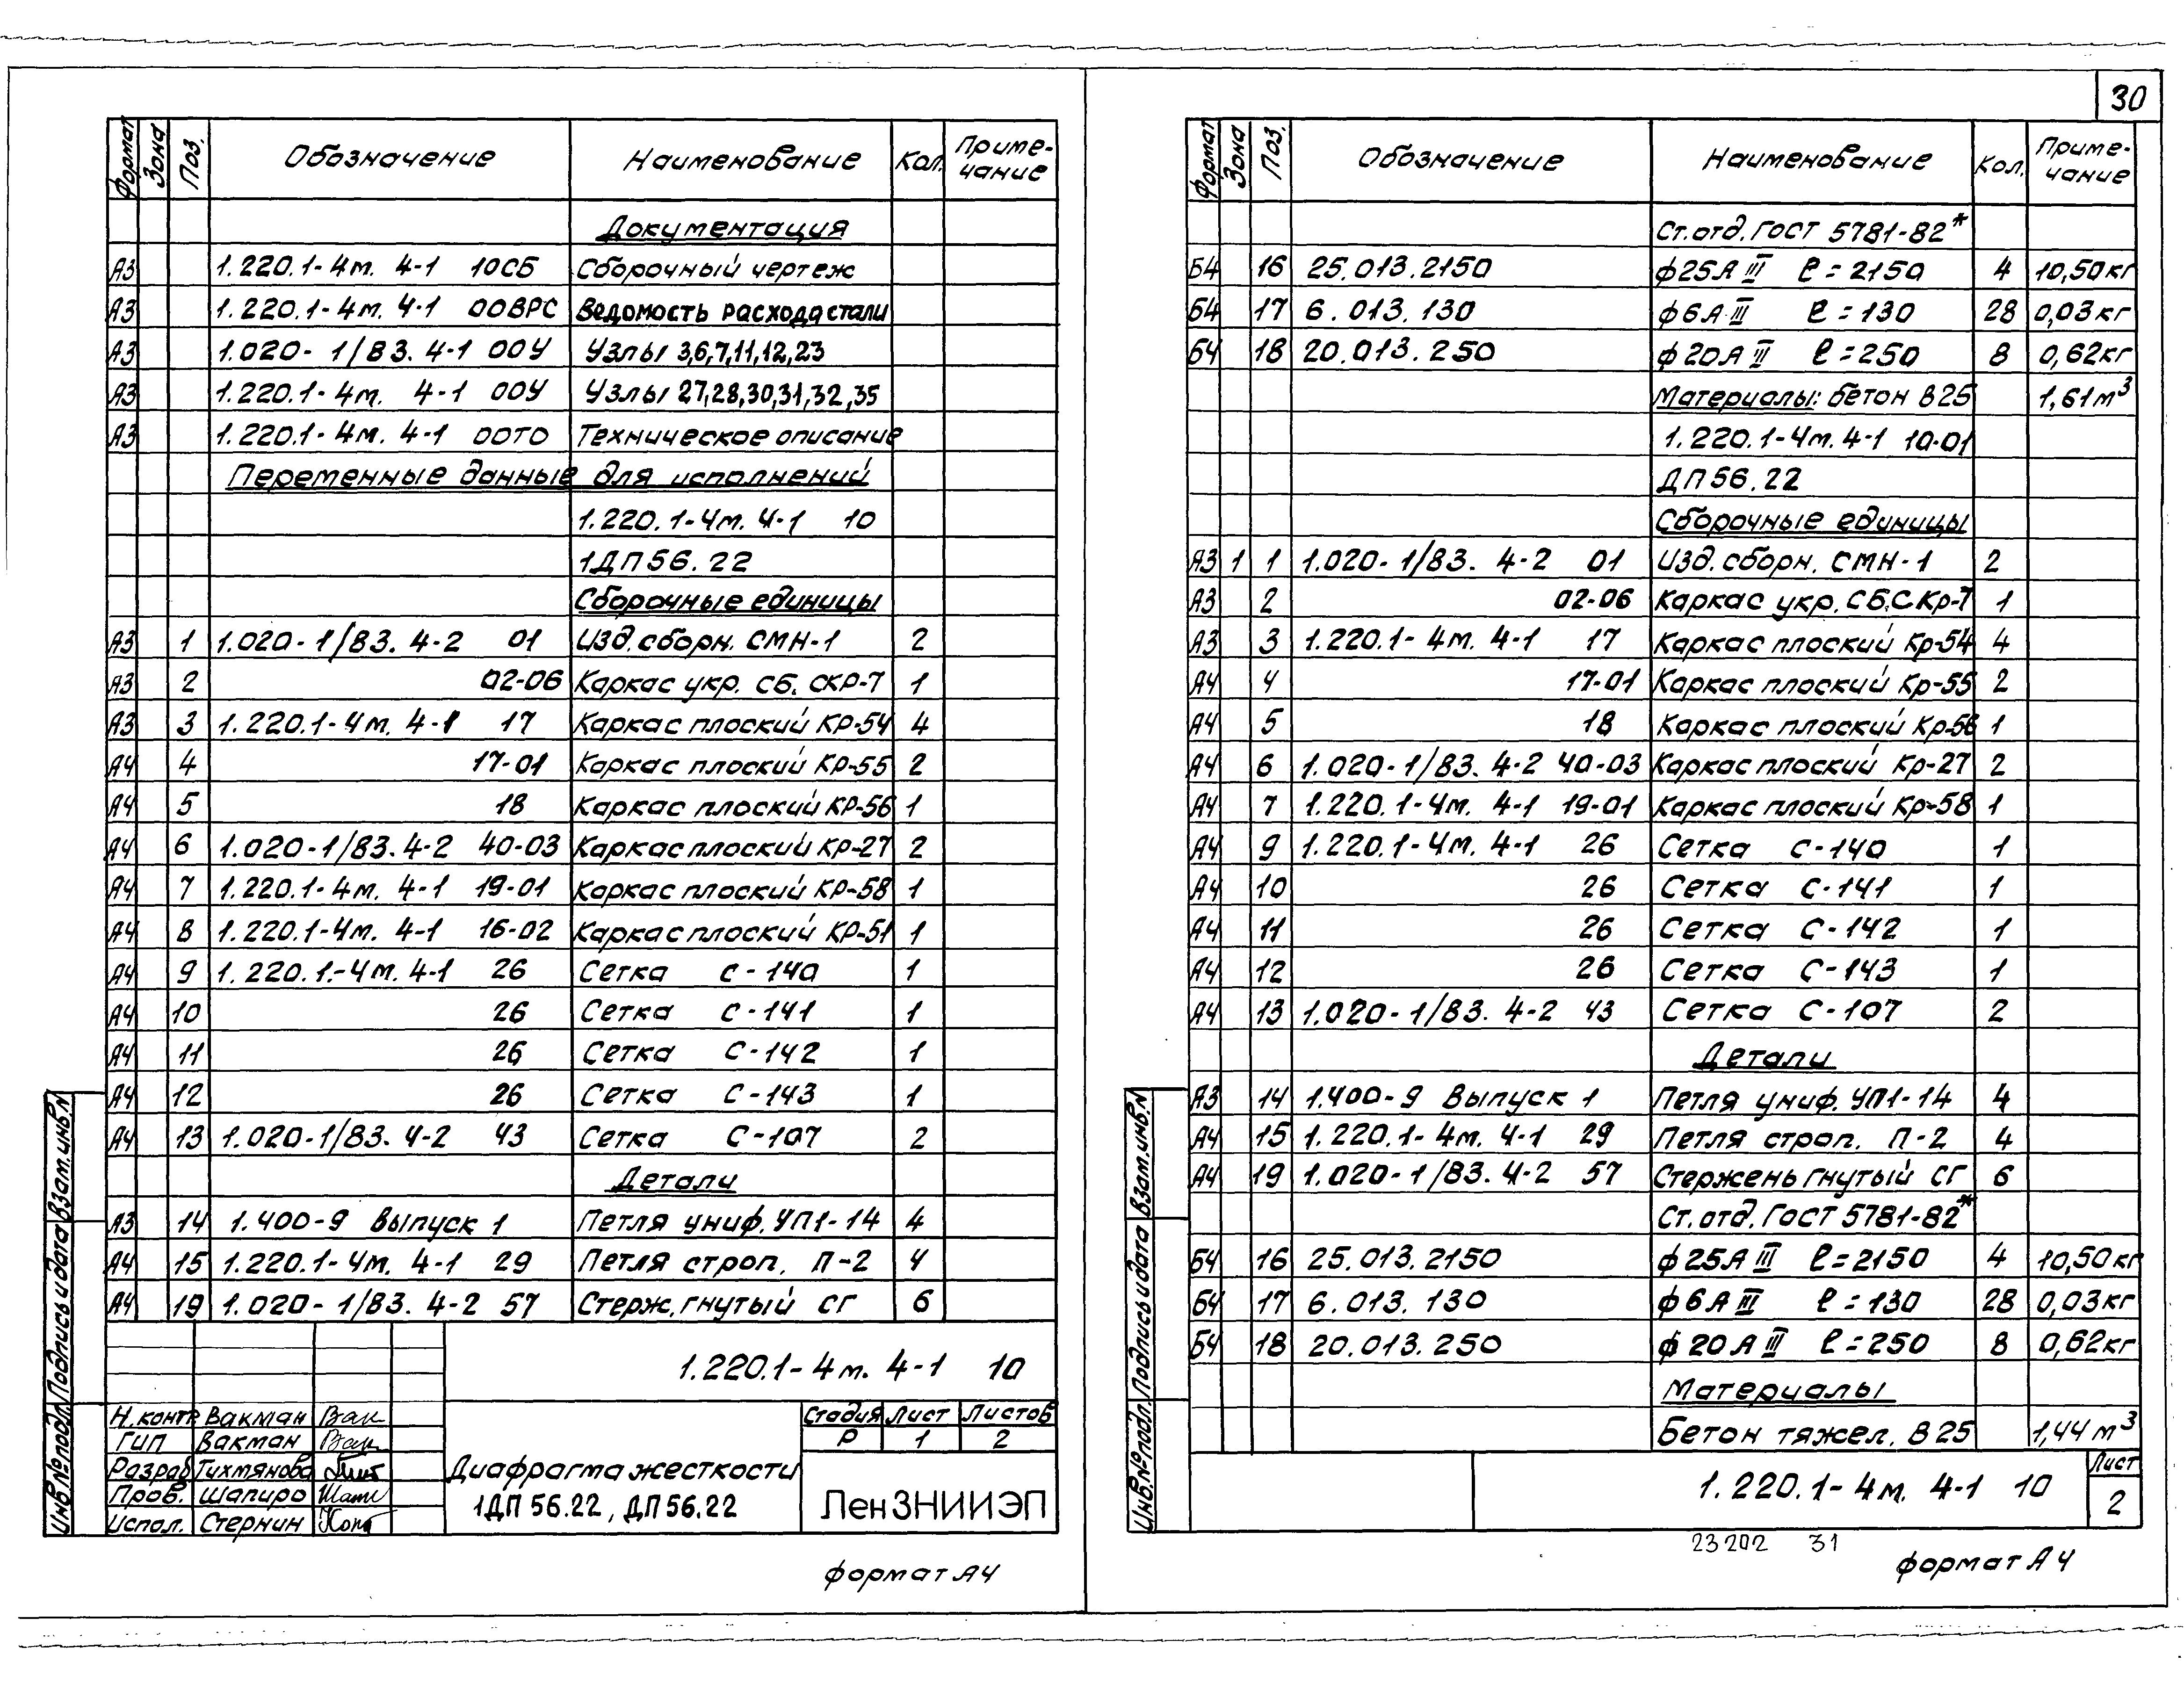 30
Формат Зона Поз. Обозначение Наименование Кол. Примечание
Документация
А3 1.220.1-4м. 4-1 10СБ Сборочный чертеж
А3 1.220.1-4м. 4-1 00ВРС Ведомость расхода стали
А3 1.020-1/83. 4-1 00У Узлы 3,6,7,11,12,23
А3 1.220.1-4м. 4-1 00У Узлы 27,28,30,31,32,35
А3 1.220.1-4м. 4-1 00ТО Техническое описание
Переменные данные для исполнений
1.220.1-4м. 4-1 10
1ДП56.22
Сборочные единицы
А3 1 1.020-1/83. 4-2 01 Изд. сборн. СМН-1 2
А3 2 02-06 Каркас укр. сб. СКР-7 1
А3 3 1.220.1-4м. 4-1 17 Каркас плоский КР-54 4
А4 4 17-01 Каркас плоский КР-55 2
А4 5 18 Каркас плоский КР-56 1
А4 6 1.020-1/83. 4-2 40-03 Каркас плоский КР-27 2
А4 7 1.220.1-4м. 4-1 19-01 Каркас плоский КР-58 1
А4 8 1.220.1-4м. 4-1 16-02 Каркас плоский КР-51 1
А4 9 1.220.1-4м. 4-1 26 Сетка С-140 1
А4 10 26 Сетка С-141 1
А4 11 26 Сетка С-142 1
А4 12 26 Сетка С-143 1
А4 13 1.020-1/83. 4-2 43 Сетка С-107 2
Детали
А3 14 1.400-9 Выпуск 1 Петля униф. УП1-14 4
А4 15 1.220.1-4м. 4-1 29 Петля строп. П-2 4
А4 19 1.020-1/83. 4-2 57 Стерж. гнутый СГ 6
1.220.1-4м. 4-1 10
Н.контр Вакман Вак
ГИП Вакман Вак
Разраб Тихмянова
Пров. Шапиро
Испол. Стернин
Диафрагма жесткости
1ДП 56.22, ДП 56.22
Стадия Лист Листов
Р 1 2
ЛенЗНИИЭП
Инв.№подл. Подпись и дата Взам.инв.№
формат А4
Формат Зона Поз. Обозначение Наименование Кол. Примечание
Ст. отд. ГОСТ 5781-82*
Б4 16 25.013.2150 ф25АIII ℓ=2150 4 10,50кг
Б4 17 6.013.130 ф6АIII ℓ=130 28 0,03кг
Б4 18 20.013.250 ф20АIII ℓ=250 8 0,62кг
Материалы: бетон В25 1,61м³
1.220.1-4м. 4-1 10-01
ДП56.22
Сборочные единицы
А3 1 1 1.020-1/83. 4-2 01 Изд. сборн. СМН-1 2
А3 2 02-06 Каркас укр. сб. СКр-7 1
А3 3 1.220.1-4м. 4-1 17 Каркас плоский Кр-54 4
А4 4 17-01 Каркас плоский Кр-55 2
А4 5 18 Каркас плоский Кр-56 1
А4 6 1.020-1/83. 4-2 40-03 Каркас плоский Кр-27 2
А4 7 1.220.1-4м. 4-1 19-01 Каркас плоский Кр-58 1
А4 9 1.220.1-4м. 4-1 26 Сетка С-140 1
А4 10 26 Сетка С-141 1
А4 11 26 Сетка С-142 1
А4 12 26 Сетка С-143 1
А4 13 1.020-1/83. 4-2 43 Сетка С-107 2
Детали
А3 14 1.400-9 Выпуск 1 Петля униф. УП1-14 4
А4 15 1.220.1-4м. 4-1 29 Петля строп. П-2 4
А4 19 1.020-1/83. 4-2 57 Стержень гнутый СГ 6
Ст. отд. ГОСТ 5781-82*
Б4 16 25.013.2150 ф25АIII ℓ=2150 4 10,50кг
Б4 17 6.013.130 ф6АIII ℓ=130 28 0,03кг
Б4 18 20.013.250 ф20АIII ℓ=250 8 0,62кг
Материалы
Бетон тяжел. В25 1,44м³
1.220.1-4м. 4-1 10
Лист
2
Инв.№подл. Подпись и дата Взам.инв.№
23202 31
формат А4